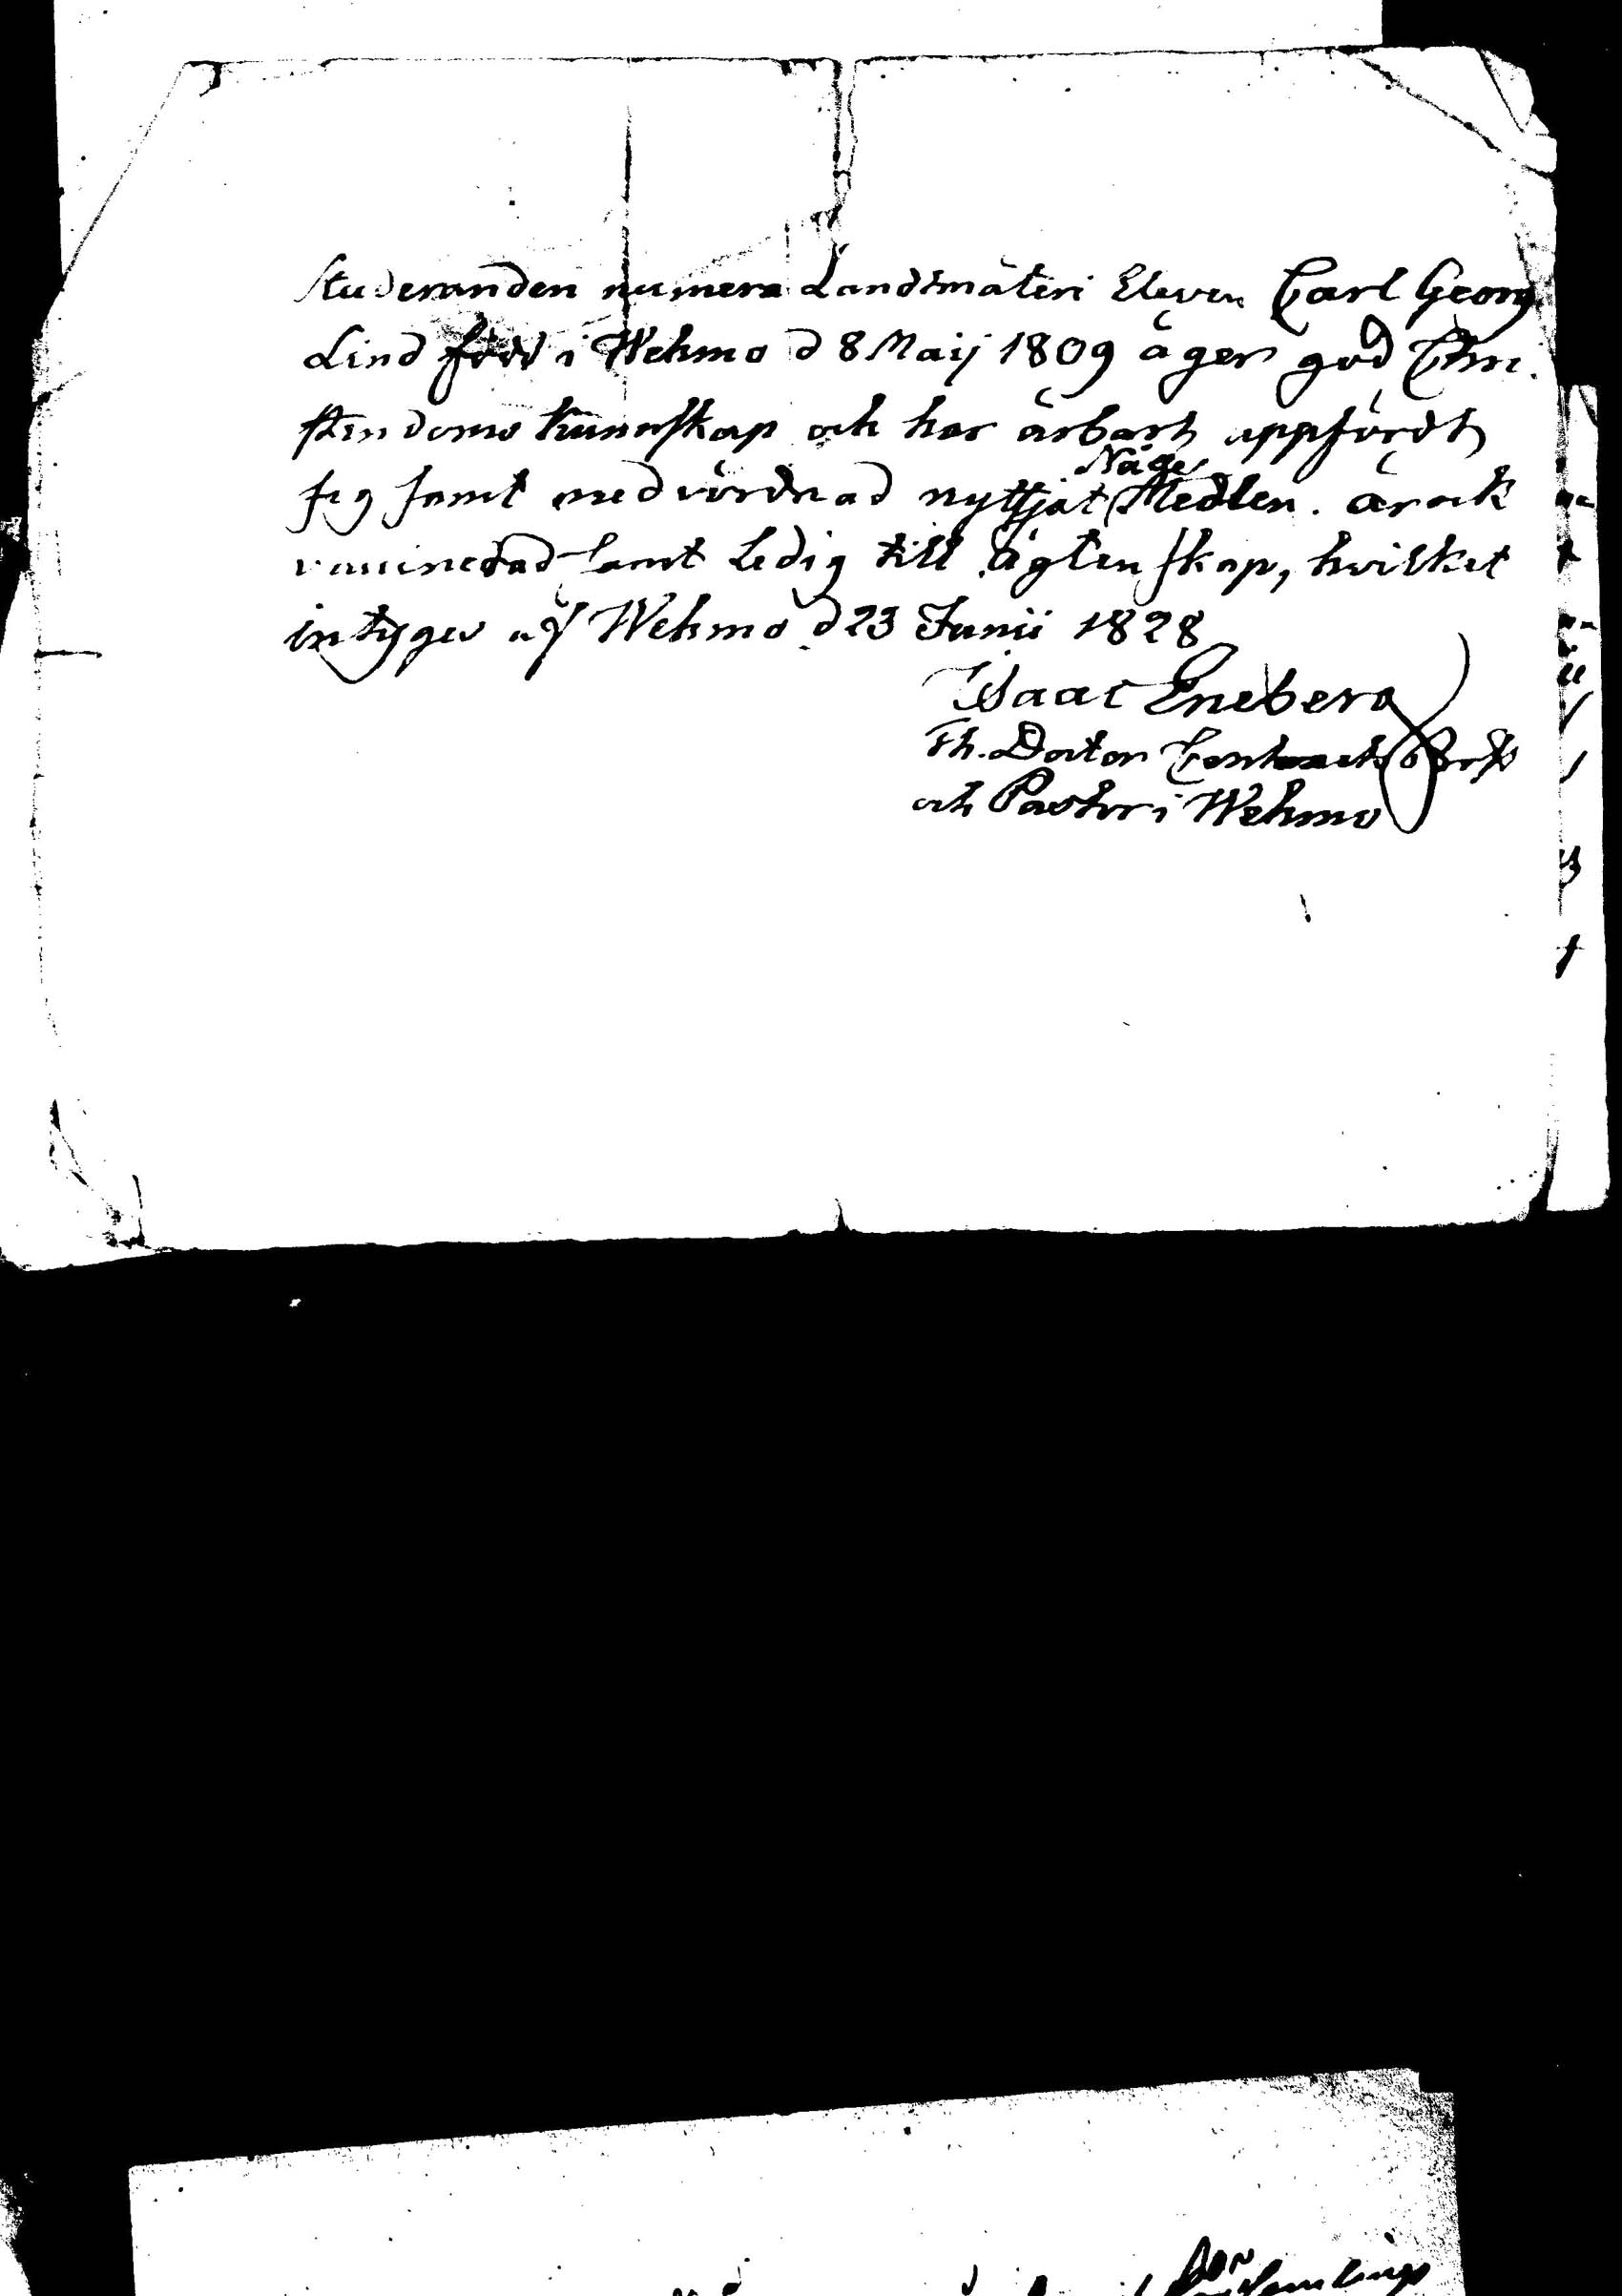 Studeranden numera Landtmäteri Eleven Carl Georg
Lind född i Wehmo d 8 Maij 1809 äger god Chri-
stendoms kunnskap och har ärbart uppfördt
sig samt med vördnad nyttjat Nåde Medlen. är ock
vaccinerad samt ledig till ägtenskap, hvilket
intygas af Wehmo d 23 Junii 1828
Isaac Eneberg
Th. Doctor Contracts Prost
och Pastor i Wehmo